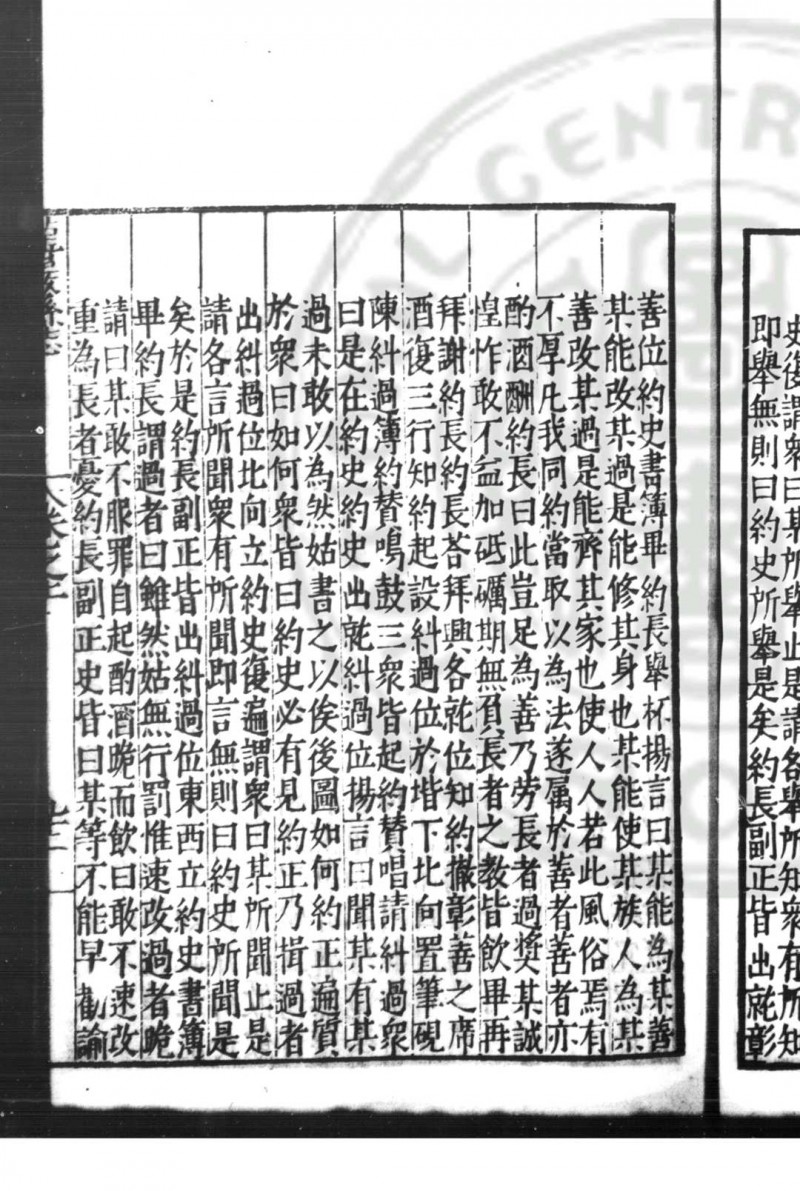 史復謂衆曰某所舉止是請各舉所知衆有所知
即舉無則曰約史所舉是矣約長副正皆出就彰
善位約史書簿畢約長舉杯揚言曰某能為某善
某能改某過是能修其身也某能使某族人為某
善改某過是能齊其家也使人人若此風俗焉有
不厚凡我同約當取以為法遂屬於善者善者亦
酌酒酬約長曰此豈足為善乃勞長者過奬某誠
惶怍敢不益加砥礪期無負長者之教皆飲畢再
拜謝約長約長荅拜興各就位知約撤彰善之席
酒復三行知約起設糾過位於堦下北向置筆硯
陳糾過簿約賛鳴鼓三衆皆起約賛唱請糾過衆
曰是在約史約史出就糾過位揚言曰聞某有某
過未敢以為然姑書之以俟後圖如何約正遍質
於衆曰如何衆皆曰約史必有見約正乃揖過者
出糾過位北向立約史復遍謂衆曰某所聞止是
請各言所聞衆有所聞即言無則曰約史所聞是
矣於是約長副正皆出糾過位東西立約史書簿
畢約長謂過者曰雖然姑無行罰惟速改過者跪
請曰某敢不服罪自起酌酒跪而飲曰敢不速改
重為長者憂約長副正史皆曰某等不能早勸諭